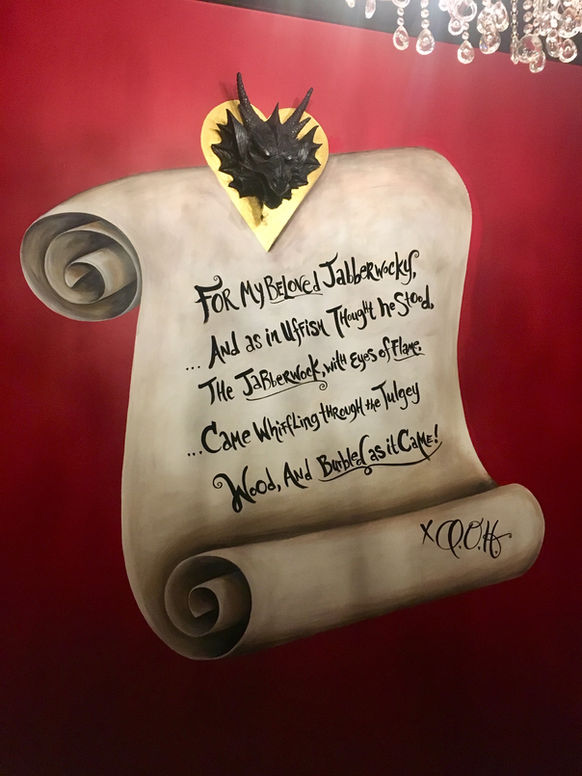 For My Beloved Jabberwocky,
... And as in Uffish Thought he Stood,
The Jabberwock, with Eyes of Flame,
...Came Whiffling through the Tulgey
Wood, And Burbled as it Came!
x Q.O.H.